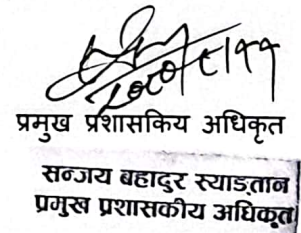 २०८०।८।११
प्रमुख प्रशासकिय अधिकृत
सन्जय बहादुर स्याङ्तान
प्रमुख प्रशासकीय अधिकृत